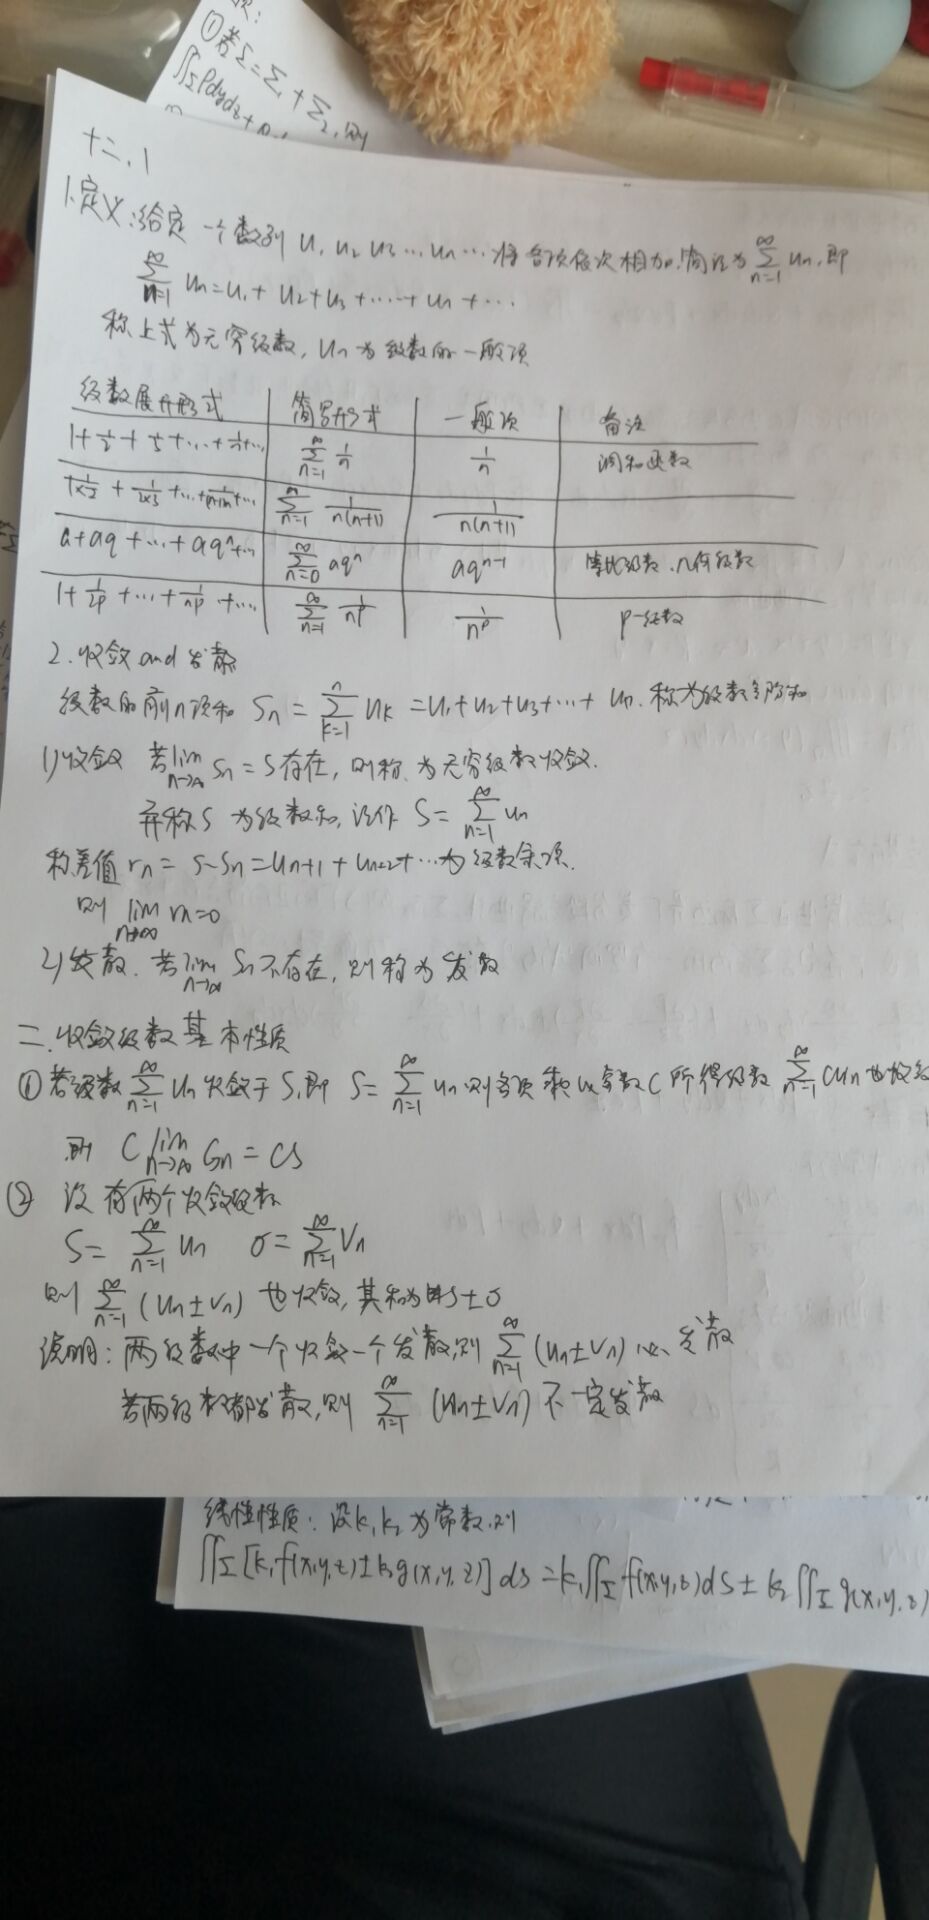 ①若Σ=Σ₁+Σ₂,则
∬_Σ Pdydz+
十二、1
1.定义:给定一个数列 u₁ u₂ u₃…uₙ…将各项依次相加,简记为 ∑_{n=1}^{∞} uₙ,即
∑_{n=1}^{∞} uₙ=u₁+u₂+u₃+…+uₙ+…
称上式为无穷级数,uₙ为级数的一般项
级数展开形式 简写形式 一般项 备注
1+1/2+1/3+…+1/n+… ∑_{n=1}^{∞} 1/n 1/n 调和函数
1/1×2+1/2×3+…+ +… ∑_{n=1}^{∞} 1/n(n+1) 1/n(n+1)
a+aq+…+aqⁿ+… ∑_{n=0}^{∞} aqⁿ aqⁿ⁻¹ 等比级数、几何级数
1+1/2ᵖ+…+1/nᵖ+… ∑_{n=1}^{∞} 1/nᵖ 1/nᵖ p-级数
2.收敛and发散
级数的前n项和 Sₙ=∑_{k=1}^{n} uₖ=u₁+u₂+u₃+…+uₙ.称为级数部分和
1)收敛 若lim_{n→∞} Sₙ=S存在,则称为无穷级数收敛.
并称S为级数和,记作 S=∑_{n=1}^{∞} uₙ
称差值 rₙ=S-Sₙ=uₙ₊₁+uₙ₊₂+…为级数余项.
则 lim_{n→∞} rₙ=0
2)发散.若lim_{n→∞} Sₙ不存在,则称为发散
二.收敛级数基本性质
①若级数∑_{n=1}^{∞} uₙ收敛于S,即 S=∑_{n=1}^{∞} uₙ则各项乘以常数C所得级数∑_{n=1}^{∞} Cuₙ也收敛
则 C lim_{n→∞} Gₙ=CS
② 设有两个收敛级数
S=∑_{n=1}^{∞} uₙ σ=∑_{n=1}^{∞} Vₙ
则∑_{n=1}^{∞} (uₙ±Vₙ)也收敛,其和为S±σ
说明:两级数中一个收敛一个发散,则∑_{n=1}^{∞} (uₙ±Vₙ)必发散
若两级数都发散,则∑_{n=1}^{∞} (uₙ±Vₙ)不一定发散
线性性质:设k₁k₂为常数,则
∬_Σ[k₁f(x,y,z)±k₂g(x,y,z)]dS=k₁∬_Σ f(x,y,z)dS±k₂∬_Σ g(x,y,z)